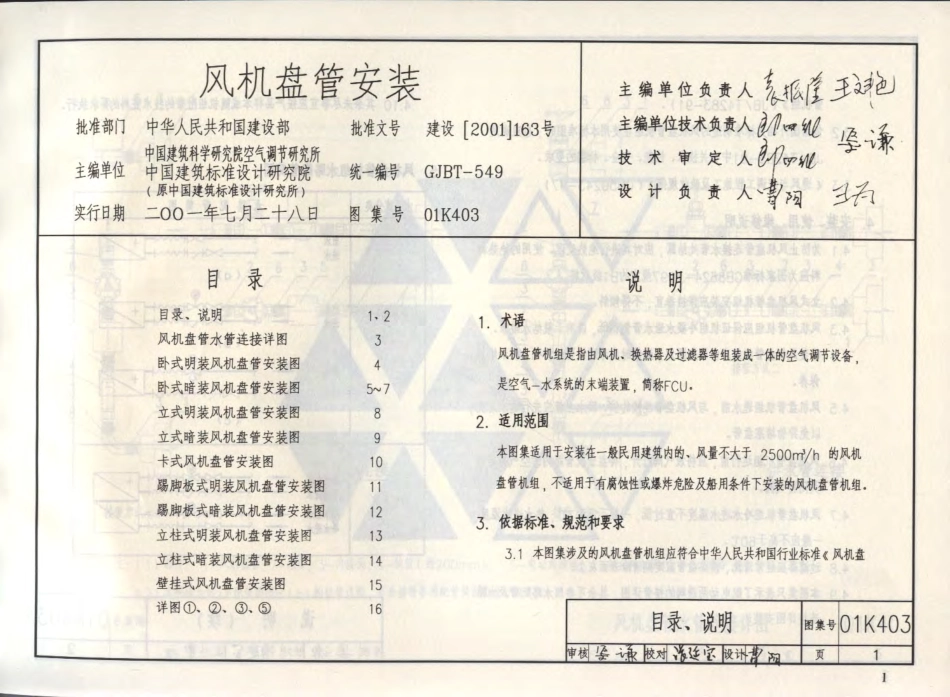 风机盘管安装
批准部门 中华人民共和国建设部 批准文号 建设[2001]163号
主编单位 中国建筑科学研究院空气调节研究所
中国建筑标准设计研究院
(原中国建筑标准设计研究所)
统一编号 GJBT-549
实行日期 二〇〇一年七月二十八日 图集号 01K403
主编单位负责人
主编单位技术负责人
技术审定人
设计负责人
目录
目录、说明 1、2
风机盘管水管连接详图 3
卧式明装风机盘管安装图 4
卧式暗装风机盘管安装图 5~7
立式明装风机盘管安装图 8
立式暗装风机盘管安装图 9
卡式风机盘管安装图 10
踢脚板式明装风机盘管安装图 11
踢脚板式暗装风机盘管安装图 12
立柱式明装风机盘管安装图 13
立柱式暗装风机盘管安装图 14
壁挂式风机盘管安装图 15
详图①、②、③、⑤ 16
说明
1. 术语
风机盘管机组是指由风机、换热器及过滤器等组装成一体的空气调节设备,
是空气—水系统的末端装置,简称FCU。
2. 适用范围
本图集适用于安装在一般民用建筑内的、风量不大于 2500m³/h 的风机
盘管机组,不适用于有腐蚀性或爆炸危险及船用条件下安装的风机盘管机组。
3. 依据标准、规范和要求
3.1 本图集涉及的风机盘管机组应符合中华人民共和国行业标准《风机盘
目录、说明 图集号 01K403
审核 校对 设计 页 1
1